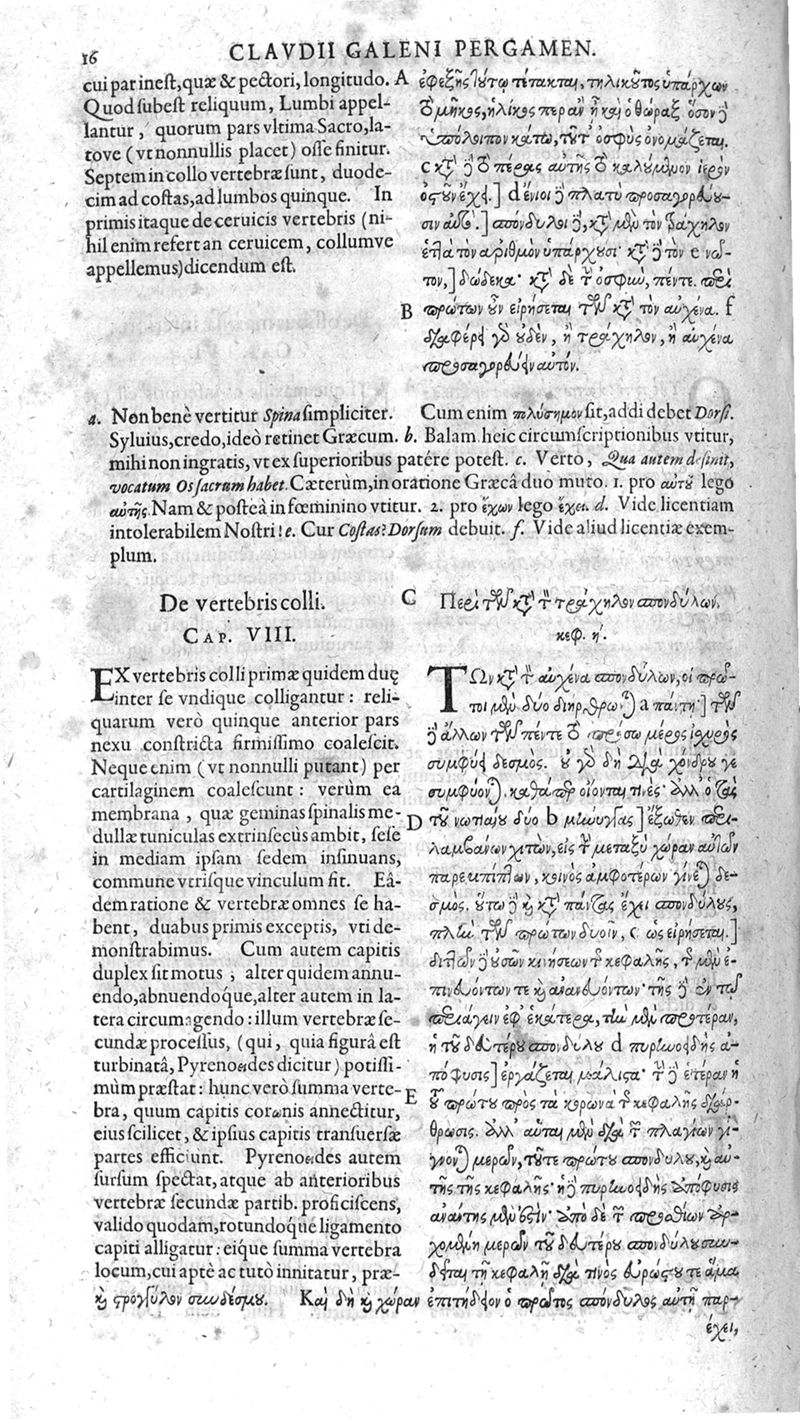 16
CLAVDII GALENI PERGAMEN.
cui par inest, quæ & pectori, longitudo.
Quod subest reliquum, Lumbi appel-
lantur, quorum pars vltima Sacro, la-
tove (vt nonnullis placet) osse finitur.
Septem in collo vertebræ sunt, duode-
cim ad costas, ad lumbos quinque. In
primis itaque de ceruicis vertebris (ni-
hil enim refert an ceruicem, collumve
appellemus) dicendum est.
A
ἐφεξῆς τούτῳ τέτακται, τηλικοῦτος ὑπάρχων
τὸ μῆκος, ἡλίκος περ ἂν ᾖ καὶ ὁ θώραξ. ὅσον δὲ
ὑπόλοιπον κάτω, τοῦτ' ὀσφὺς ὀνομάζεται.
c κατὰ δὲ τὸ πέρας αὐτῆς τὸ καλούμενον ἱερὸν
ὀστοῦν ἔχει.] d ἔνιοι δὲ πλατὺ προσαγορεύου-
σιν αὐτό.] σπόνδυλοι δὲ, κατὰ μὲν τὸν τράχηλον
ἑπτὰ τὸν ἀριθμὸν ὑπάρχουσι· κατὰ δὲ τὸν e νῶ-
τον,] δώδεκα· κατὰ δὲ τὴν ὀσφὺν, πέντε. περὶ
B
πρώτων οὖν εἰρήσεται τῶν κατὰ τὸν αὐχένα. f
διαφέρει γὰρ οὐδὲν, ἢ τράχηλον, ἢ αὐχένα
προσαγορεύειν αὐτόν.
a. Non benè vertitur Spina simpliciter. Cum enim πολύσημον sit, addi debet Dorsi.
Syluius, credo, ideò retinet Græcum. b. Balam. heic circumscriptionibus vtitur,
mihi non ingratis, vt ex superioribus patére potest. c. Verto, Qua autem desinit,
vocatum Os sacrum habet. Cæterùm, in oratione Græcâ duo muto. 1. pro αὐτοῦ lego
αὐτῆς. Nam & posteà in fœminino vtitur. 2. pro ἔχων lego ἔχει. d. Vide licentiam
intolerabilem Nostri! e. Cur Costas? Dorsum debuit. f. Vide aliud licentiæ exem-
plum.
De vertebris colli.
CAP. VIII.
C
Περὶ τῶν κατὰ τὸν τράχηλον σπονδύλων.
κεφ. η΄.
EX vertebris colli primæ quidem duę
inter se vndique colligantur: reli-
quarum verò quinque anterior pars
nexu constricta firmissimo coalescit.
Neque enim (vt nonnulli putant) per
cartilaginem coalescunt: verùm ea
membrana, quæ geminas spinalis me-
dullæ tuniculas extrinsecùs ambit, sese
in mediam ipsam sedem insinuans,
commune vtrisque vinculum fit. Eâ-
dem ratione & vertebræ omnes se ha-
bent, duabus primis exceptis, vti de-
monstrabimus. Cum autem capitis
duplex sit motus, alter quidem annu-
endo, abnuendóque, alter autem in la-
tera circumagendo: illum vertebræ se-
cundæ processus, (qui, quia figurâ est
turbinatâ, Pyrenoeides dicitur) potissi-
mùm præstat: hunc verò summa verte-
bra, quum capitis coronis annectitur,
eius scilicet, & ipsius capitis transuersæ
partes efficiunt. Pyrenoeides autem
sursum spectat, atque ab anterioribus
vertebræ secundæ partib. proficiscens,
valido quodam, rotundóque ligamento
capiti alligatur: eíque summa vertebra
locum, cui aptè ac tutò innitatur, præ-
ΤΩν κατὰ τὸν αὐχένα σπονδύλων, οἱ πρῶ-
τοι μὲν δύο διήρθρωνται a πάντη·] τῶν
δὲ ἄλλων τῶν πέντε τὸ πρόσω μέρος ἰσχυρὸς
συμφύει δεσμός. οὐ γὰρ δὴ διὰ χόνδρου γε
συμφύονται, καθάπερ οἴονταί τινες· ἀλλ' ὁ τὰς
D
τοῦ νωτιαίου δύο b μήνιγγας] ἔξωθεν περι-
λαμβάνων χιτὼν, εἰς τὴν μεταξὺ χώραν αὐτῶν
παρεμπίπτων, κοινὸς ἀμφοτέρων γίνεται δε-
σμός. οὕτω δὲ καὶ κατὰ πάντας ἔχει σπονδύλους,
πλὴν τῶν πρώτων δυοῖν, c ὡς εἰρήσεται.]
διττῶν δὲ οὐσῶν κινήσεων τῆς κεφαλῆς, τῆς μὲν ἐ-
πινευόντων τε καὶ ἀνανευόντων· τῆς δὲ ἐν τῷ
περιάγειν ἐφ' ἑκάτερα, τὴν μὲν προτέραν,
ἡ τοῦ δευτέρου σπονδύλου d πυρηνοειδὴς ἀ-
πόφυσις] ἐργάζεται μάλιστα· τὴν δὲ ἑτέραν ἡ
E
τοῦ πρώτου πρὸς τὰ κορωνὰ τῆς κεφαλῆς διάρ-
θρωσις. ἀλλ' αὗται μὲν διὰ τῶν πλαγίων γί-
γνονται μερῶν, τοῦ τε πρώτου σπονδύλου, καὶ αὐ-
τῆς τῆς κεφαλῆς· ἡ δὲ πυρηνοειδὴς ἀπόφυσις
ἀνάντης μέν ἐστιν· ἀπὸ δὲ τῶν προσθίων ἀρ-
χομένη μερῶν τοῦ δευτέρου σπονδύλου συν-
δεῖται τῇ κεφαλῇ διά τινος εὐρώστου τε ἅμα
καὶ στρογγύλου συνδέσμου. Καὶ δὴ καὶ χώραν ἐπιτήδειον ὁ πρῶτος σπόνδυλος αὐτῇ παρ-
έχει,